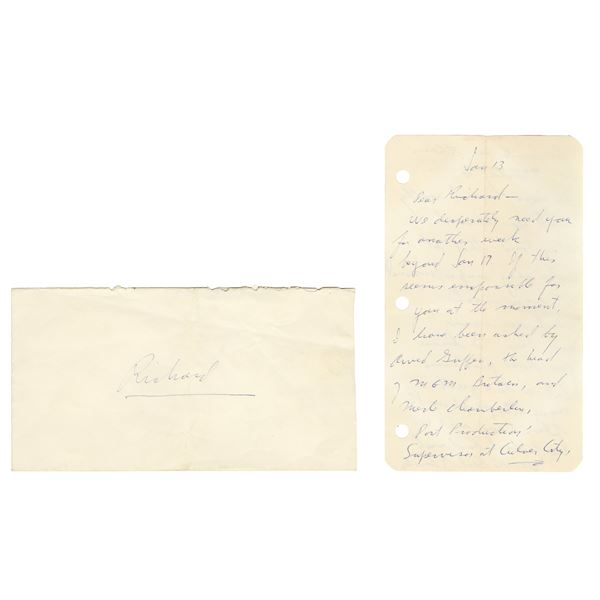 Richard
Jan 13
Dear Richard—
We desperately need you
for another week
beyond Jan 17. If this
seems impossible for
you at the moment,
I have been asked by
the head
of MGM Britain, and
Merle Chamberlin,
Post Productions'
Supervisor at Culver City,